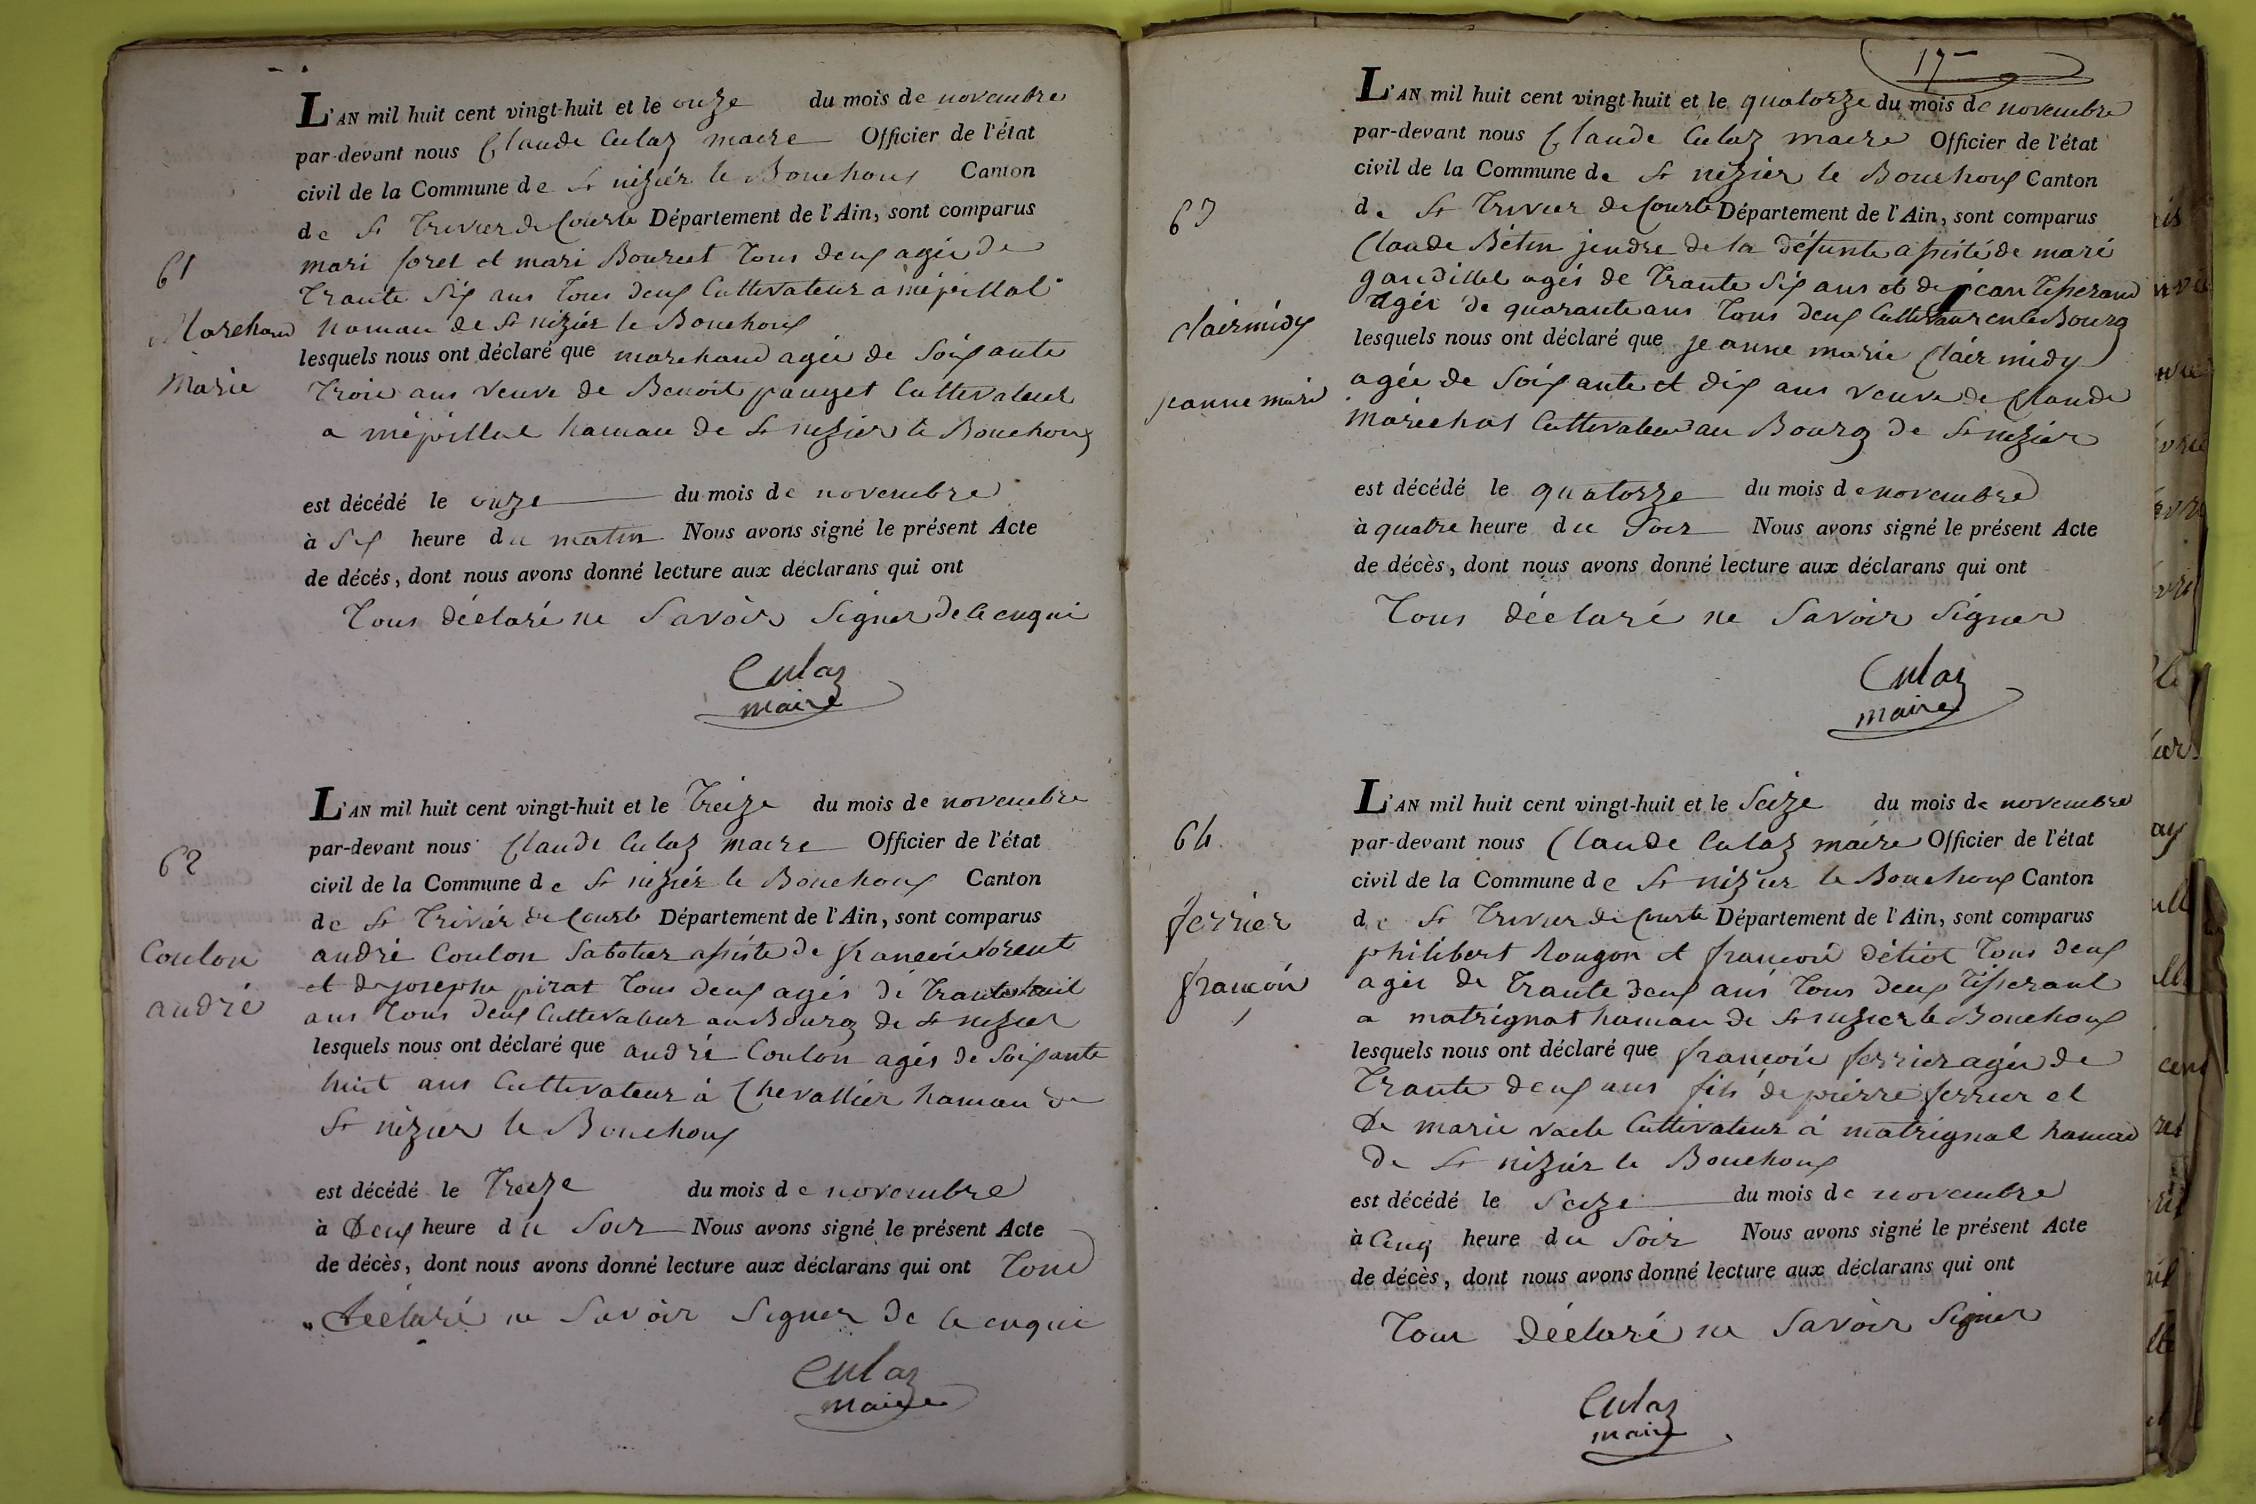 61
Marchand
Marie
L'AN mil huit cent vingt-huit et le onze du mois de novembre
par-devant nous Claude Culaz maire Officier de l'état
civil de la Commune de St nizier le Bouchoux Canton
de St Trivier de Courte Département de l'Ain, sont comparus
mari foret et mari Bourcet tous deux agée de
trante six ans tous deux Cultivateur a mépillat
hamau de St nizier le Bouchoux
lesquels nous ont déclaré que marchand agée de soixante
trois ans veuve de Benoit pauget Cultivateur
a mépillat hamau de St nizier le Bouchoux
est décédé le onze du mois de novembre
à six heure du matin Nous avons signé le présent Acte
de décés, dont nous avons donné lecture aux déclarans qui ont
tous déclaré ne savoir signer de ce enqui
Culaz
maire
62
Coulon
andré
L'AN mil huit cent vingt-huit et le treize du mois de novembre
par-devant nous Claude Culaz maire Officier de l'état
civil de la Commune de St nizier le Bouchoux Canton
de St Trivier de Courte Département de l'Ain, sont comparus
andré Coulon Sabotier assisté de francois
et de josephe pirat tous deux agés de trante huit
ans tous deux Cultivateur au Bourg de St nizier
lesquels nous ont déclaré que andré Coulon agés de soixante
huit ans Cultivateur à Chevallier hamau de
St nizier le Bouchoux
est décédé le treize du mois de novembre
à Deux heure du soir Nous avons signé le présent Acte
de décès, dont nous avons donné lecture aux déclarans qui ont tous
déclaré ne savoir signer de ce enqui
Culaz
maire
17
63
Clairmidy
jeanne marie
L'AN mil huit cent vingt-huit et le quatorze du mois de novembre
par-devant nous Claude Culaz maire Officier de l'état
civil de la Commune de St nizier le Bouchoux Canton
de St Trivier de Courte Département de l'Ain, sont comparus
Claude Bétin jendre de la défunte assisté de marie
gandillet agés de trante six ans et de jean tisserand
agés de quarante ans tous deux Cultivateur en le Bourg
lesquels nous ont déclaré que jeanne marie Clairmidy
agée de soixante et dix ans veuve de Claude
maréchal Cultivateur au Bourg de St nizier
est décédé le quatorze du mois de novembre
à quatre heure du soir Nous avons signé le présent Acte
de décès, dont nous avons donné lecture aux déclarans qui ont
tous déclaré ne savoir signer
Culaz
maire
64
ferrier
francois
L'AN mil huit cent vingt-huit et le seize du mois de novembre
par-devant nous Claude Culaz maire Officier de l'état
civil de la Commune de St nizier le Bouchoux Canton
de St Trivier de Courte Département de l'Ain, sont comparus
philibert Rougon et francois détiot tous deux
agés de trante deux ans tous deux tisserant
a matrignat hamau de St nizier le Bouchoux
lesquels nous ont déclaré que francois ferrier agés de
trante deux ans fils de pierre ferrier et
de marie vacle Cultivateur à matrignat hamau
de St nizier le Bouchoux
est décédé le seize du mois de novembre
à Cinq heure du soir Nous avons signé le présent Acte
de décès, dont nous avons donné lecture aux déclarans qui ont
tous déclaré ne savoir signer
Culaz
maire